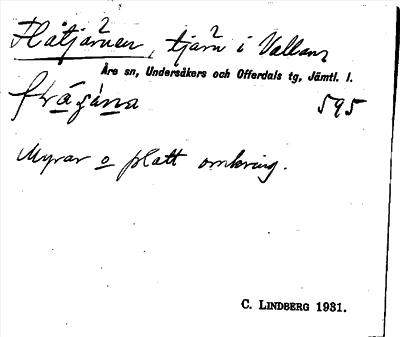 Flåtjärnen, tjärn i Vallans
Åre sn, Undersåkers och Offerdals tg, Jämtl. l.
595
Myrar o platt omkring.
C. LINDBERG 1931.